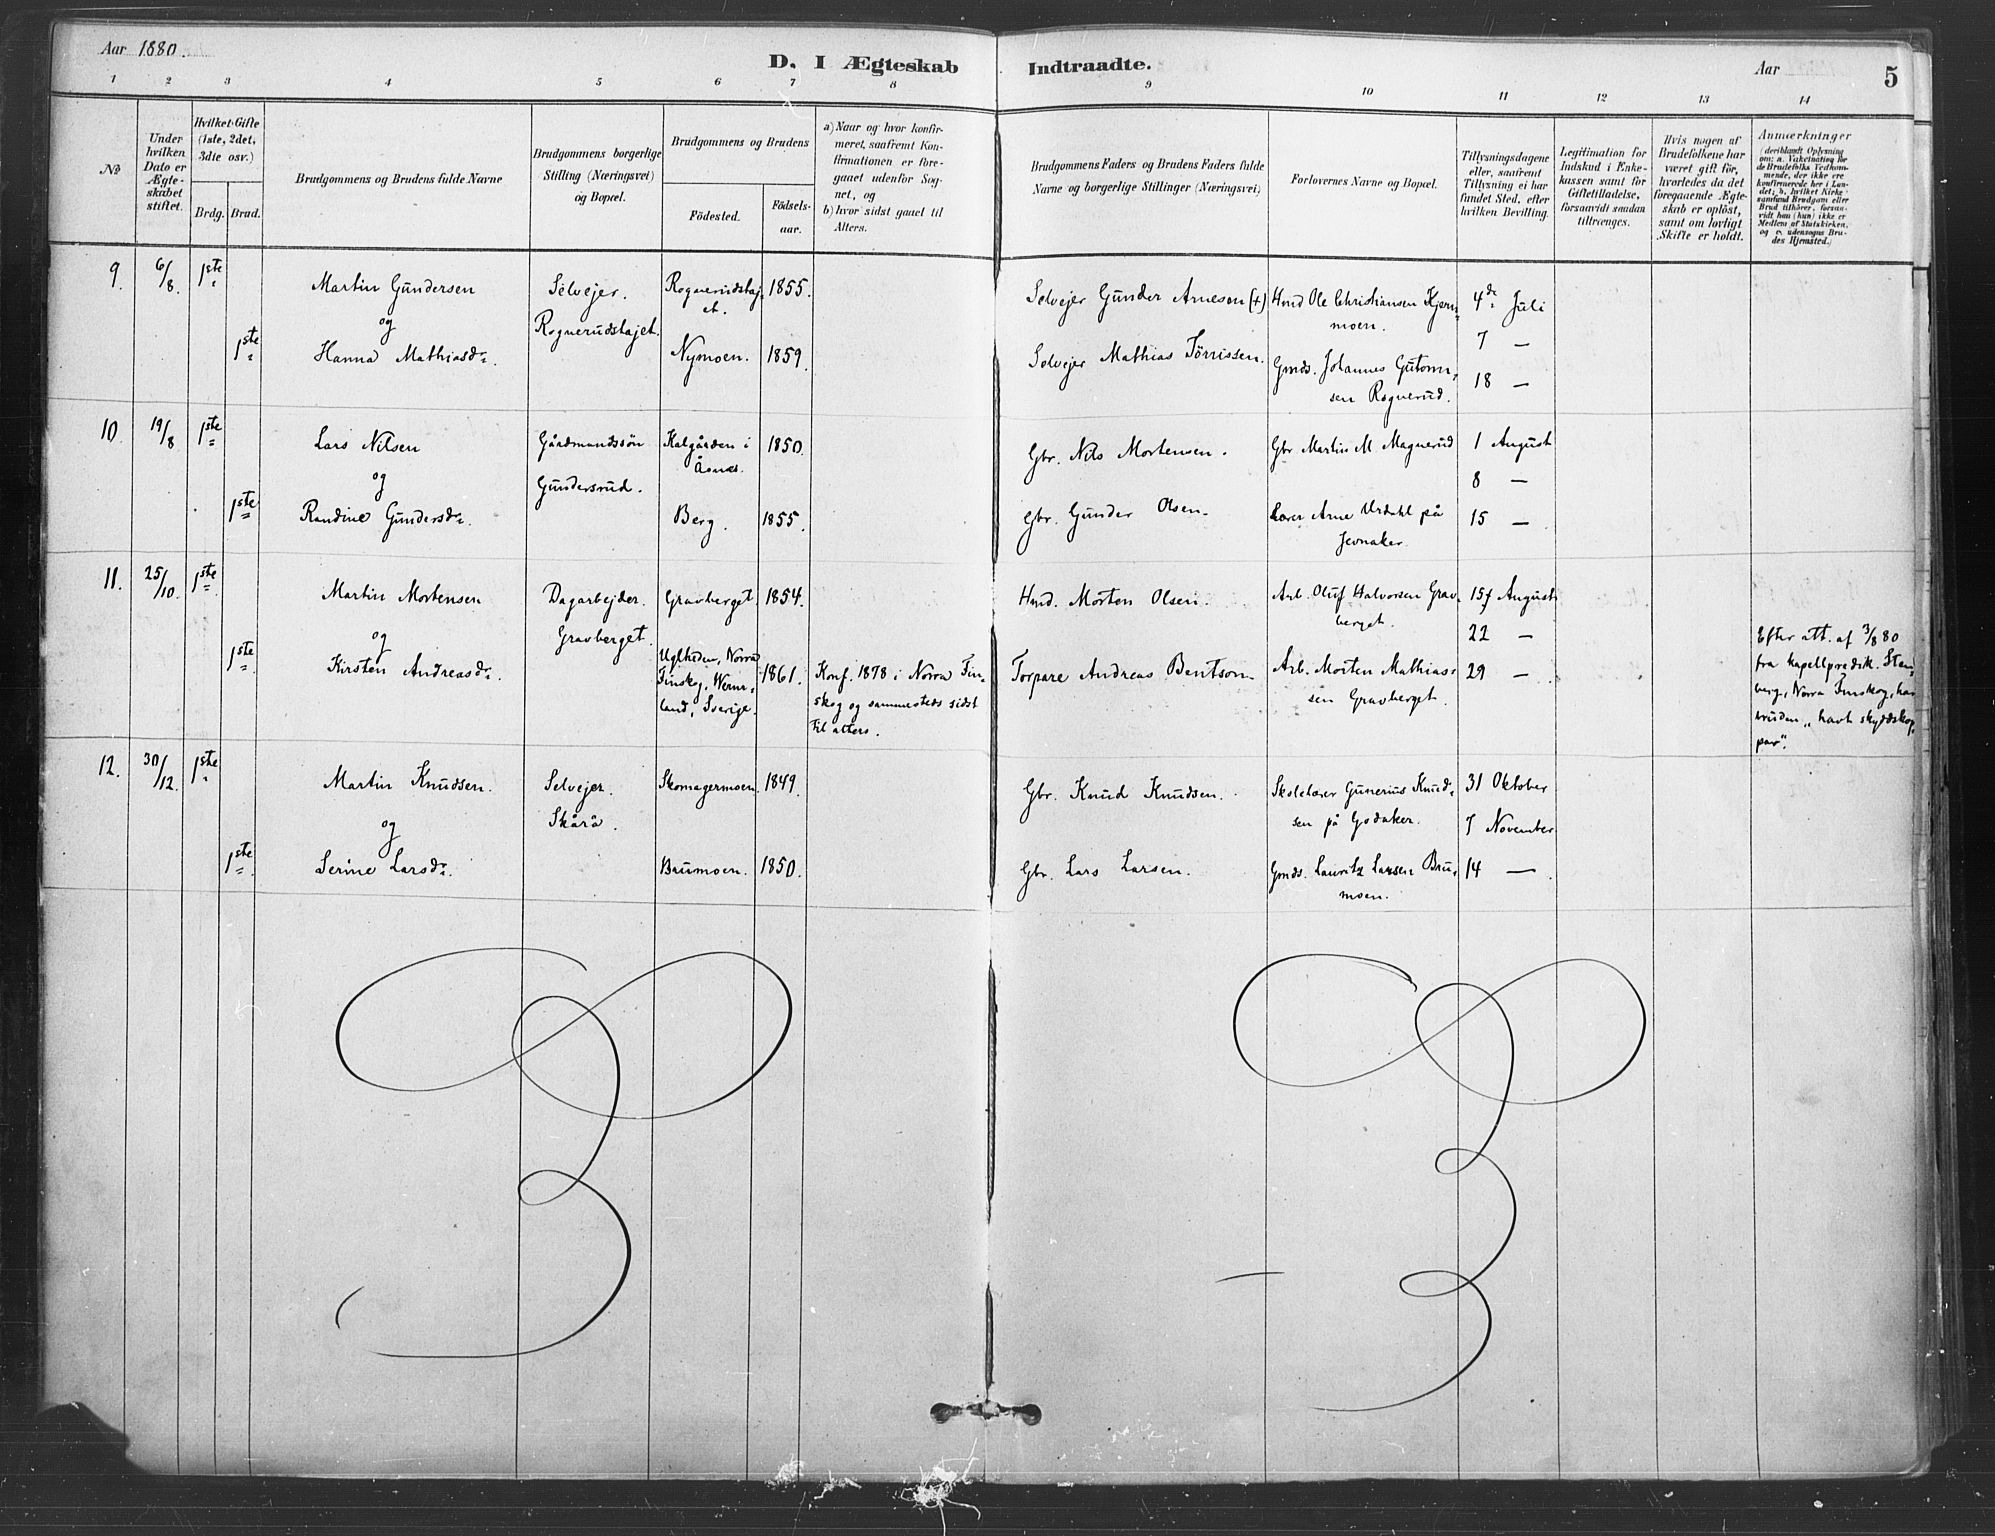 Aar 1880.
D. I Ægteskab Indtraadte.
Aar
5
1 2 3 4 5 6 7 8 9 10 11 12 13 14
No
Under hvilken Dato er Ægte-skabet stiftet.
Hvilket Gifte (1ste, 2det, 3die osv.)
Brdg. Brud.
Brudgommens og Brudens fulde Navne
Brudgommens borgerlige Stilling (Næringsvei) og Bopæl.
Brudgommens og Brudens
Fødested.
Fødsels-aar.
a) Naar og hvor konfir-
meret, saafremt Kon-
firmationen er fore-
gaaet udenfor Sog-
net, og
b) hvor sidst gaaet til
Alters.
Brudgommens Faders og Brudens Faders fulde
Navne og borgerlige Stillinger (Næringsvei)
Forlovernes Navne og Bopæl.
Tillysningsdagene
eller, saafremt
Tillysning ei har
fundet Sted, efter
hvilken Bevilling.
Legitimation for
Indskud i Enke-
kassen samt for
Giftetilladelse,
forsaavidt saadan
tiltrænges.
Hvis nogen af
Brudefolkene har
været gift før,
hvorledes da det
foregaaende Ægte-
skab er opløst,
samt om lovligt
Skifte er holdt.
Anmærkninger
(deriblandt Oplysning
om: a. Vakcination for
de Brudefolks Vedkom-
mende, der ikke ere
konfirmerede her i Lan-
det; b. hvilket Kirke-
samfund Brudgom eller
Brud tilhører, forsaa-
vidt han (hun) ikke er
Medlem af Statskirken,
og c. udensogns Bru-
des Hjemsted.)
9. 6/8. 1ste Martin Gundersen
og
1ste Hanna Mathiasdr.
Selvejer.
Rognerudstajet.
Rognerudstaj-
et. 1855.
Nymoen. 1859.
Selvejer Gunder Arnesen (+)
Selvejer Mathias Törrissen.
Hmd Ole Christiansen Kjern-
moen.
Gmds. Johannes Guttorm-
sen Rognerud.
4de Juli
7 —
18 —
10. 19/8 1ste Lars Nilsen
og
1ste Randine Gundersdr.
Gårdmandssön
Gundersrud.
Kalgården i
Åsnes. 1850.
Berg. 1855.
Gbr. Nils Mortensen.
Gbr. Gunder Olsen.
Gbr Martin M Magnerud
Lærer Arne Urdahl på
Jevnaker.
1 August
8 —
15 —
11. 25/10. 1ste Martin Mortensen
og
1ste Kirsten Andreasdr.
Dagarbejder.
Gravberget.
Gravberget 1854.
Uglheden, Norra
Finskog, Werm-
land, Sverige. 1861.
Konf. 1878 i Norra Fin-
skog og sammesteds sidst
til alters.
Hmd. Morten Olsen.
Torpare Andreas Bentson
Arb. Oluf Halvorsen Grav-
berget.
Arb. Morten Mathias-
sen Gravberget.
15 August
22 —
29 —
Efter att. af 3/8 80
fra kapellpredik. Sten-
berg, Norra Finskog, har
bruden „havt skyddskop-
por“.
12. 30/12. 1ste Martin Knudsen.
og
1ste Serine Larsdr.
Selvejer.
Skårå.
Skomagermoen 1849.
Braumoen. 1850.
Gbr. Knud Knudsen.
Gbr. Lars Larsen.
Skolelærer Gunerius Knud-
sen på Godaker.
Gmds. Lauritz Larsen Brau-
moen.
31 Oktober
7 November
14 —